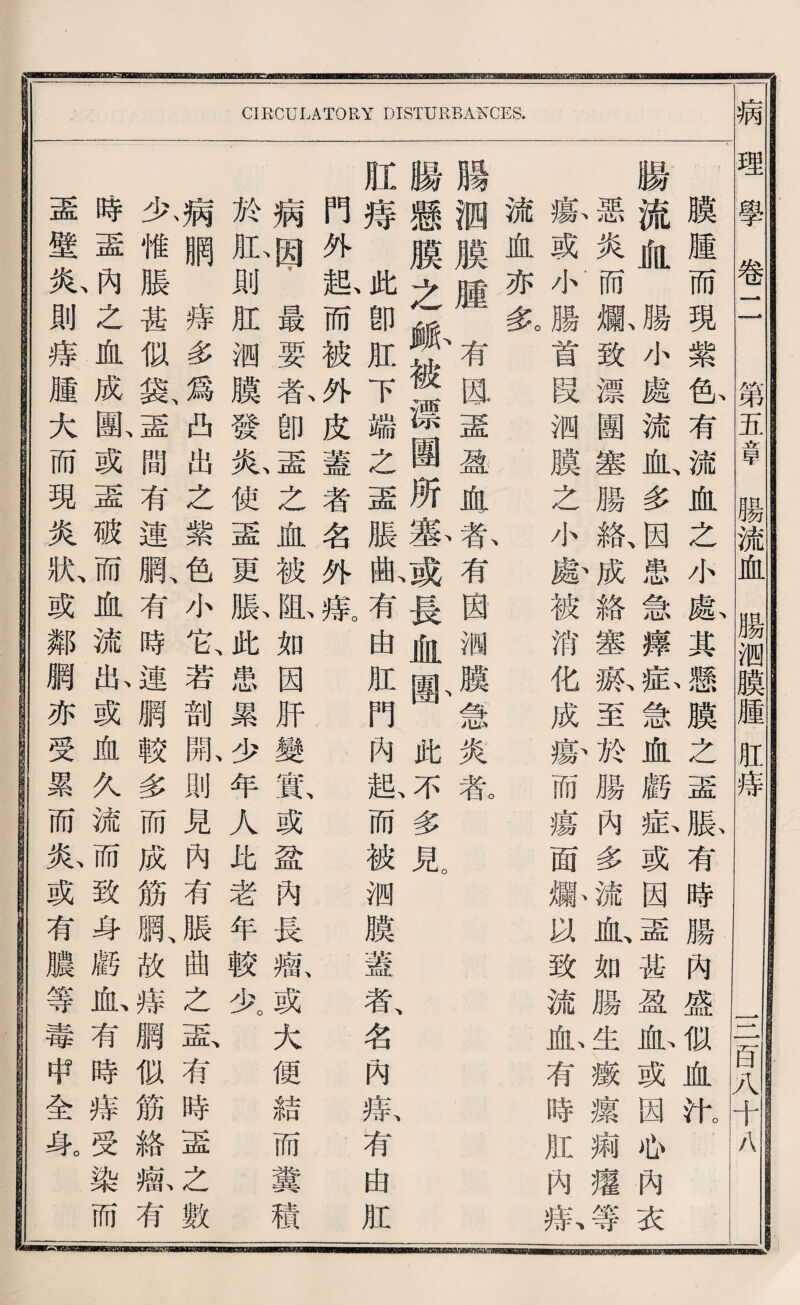 CIRCULATORY DISTURBANCES.
病理學 卷二 第五章 腸流血 腸泗膜腫 肛痔 三百八十八
膜腫而現紫色、有流血之小處、其懸膜之衁脹、有時腸內盛似血汁。
腸流血 腸小處流血、多因患急瘴症、急血虧症、或因衁甚盈血、或因心內衣
惡炎而爛、致漂團塞腸絡、成絡塞瘀、至於腸內多流血、如腸生癥瘰痢癯等
瘍、或小腸首叚泗膜之小處、被消化成瘍、而瘍面爛、以致流血、有時肛內痔、
流血亦多。
腸泗膜腫 有因衁盈血者、有因泗膜急炎者。
腸懸膜之衇、被漂團所塞、或長血團、 此不多見。
肛痔 此卽肛下端之衁脹曲、有由肛門內起、而被泗膜蓋者、名內痔、有由肛
門外起、而被外皮蓋者名外痔。
病因 最要者、卽衁之血被阻、如因肝變實、或盆內長瘤、或大便結而糞積
於肛、則肛泗膜發炎、使衁更脹、此患累少年人比老年較少。
病䐄 痔多爲凸出之紫色小它、若剖開、則見內有脹曲之衁、有時衁之數
少、惟脹甚似袋、衁間有連䐄、有時連䐄較多而成筋䐄、故痔䐄似筋絡瘤、有
時衁內之血成團、或衁破而血流出、或血久流而致身虧血、有時痔受染而
衁壁炎、則痔腫大而現炎狀、或鄰䐄亦受累而炎、或有膿等毒中全身。